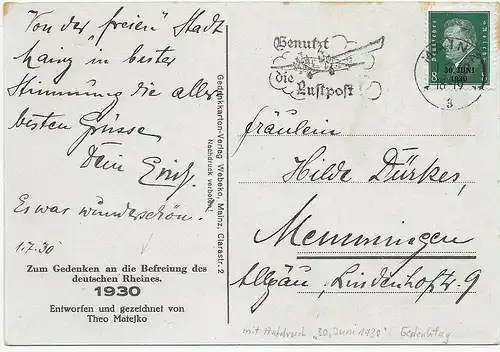 Von der „freien" Stadt
Mainz in bester
Stimmung die aller
besten Grüsse
Dein Erich.
Es war wunderschön.
1.7.30
Zum Gedenken an die Befreiung des
deutschen Rheines.
1930
Entworfen und gezeichnet von
Theo Matejko
Gedenkkarten-Verlag Webeko, Mainz, Clarastr. 2
Nachdruck verboten!
Benutzt
die
Luftpost
MAINZ
3
8
30. JUNI
1930
Fräulein
Hilde Dürkes,
Memmingen
Allgäu, Lindenhofstr. 9
mit Aufdruck "30. Juni 1930" Gedenktag